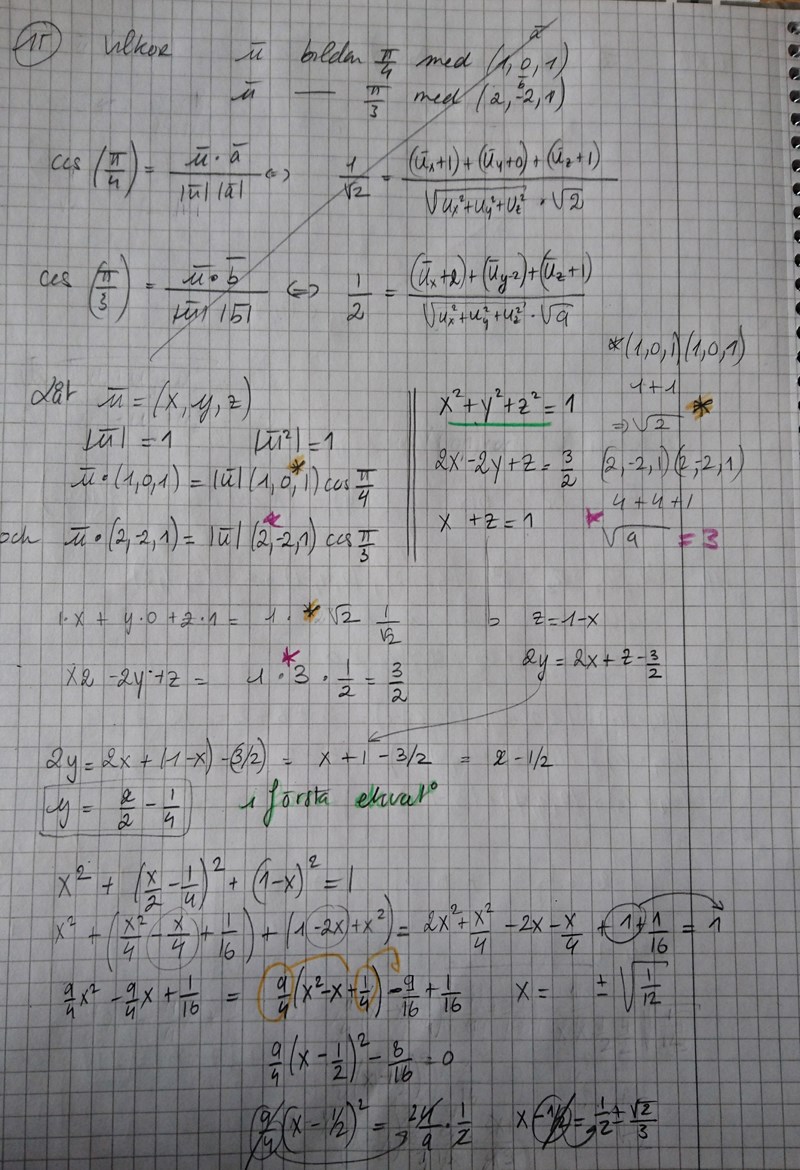 15 Vilkor ū bildar π/4 med ā (1, 0, 1)
ū — π/3 med b (2, -2, 1)
cos (π/4) = ū · ā / |ū| |ā| ⇔ 1/√2 = (ūx+1) + (ūy+0) + (ūz+1) / √(ux²+uy²+uz²) · √2
cos (π/3) = ū · b̄ / |ū| |b̄| ⇔ 1/2 = (ūx+2) + (ūy-2) + (ūz+1) / √(ux²+uy²+uz²) · √9
Låt ū = (x, y, z)
|ū| = 1 |ū²| = 1
ū · (1, 0, 1) = |ū| (1, 0, 1)* cos π/4
och ū · (2, -2, 1) = |ū| (2, -2, 1)* cos π/3
x² + y² + z² = 1
2x - 2y + z = 3/2
x + z = 1
*(1, 0, 1)(1, 0, 1)
1+1
⇒ √2 *
(2, -2, 1)(2, -2, 1)
4 + 4 + 1
* √9 = 3
1·x + y·0 + z·1 = 1 · * √2 1/√2
x2 - 2y + z = 1 · * 3 · 1/2 = 3/2
z = 1-x
2y = 2x + z - 3/2
2y = 2x + (1-x) - (3/2) = x + 1 - 3/2 = x - 1/2
y = x/2 - 1/4 i första ekvat°
x² + (x/2 - 1/4)² + (1-x)² = 1
x² + (x²/4 - x/4 + 1/16) + (1 - 2x + x²) = 2x² + x²/4 - 2x - x/4 + 1 + 1/16 = 1
9/4 x² - 9/4 x + 1/16 = 9/4 (x² - x + 1/4) - 9/16 + 1/16 x = ± √(1/12)
9/4 (x - 1/2)² - 8/16 = 0
(9/4) (x - 1/2)² = 4/9 · 1/2 x - 1/2 = 1/2 ± √2/3